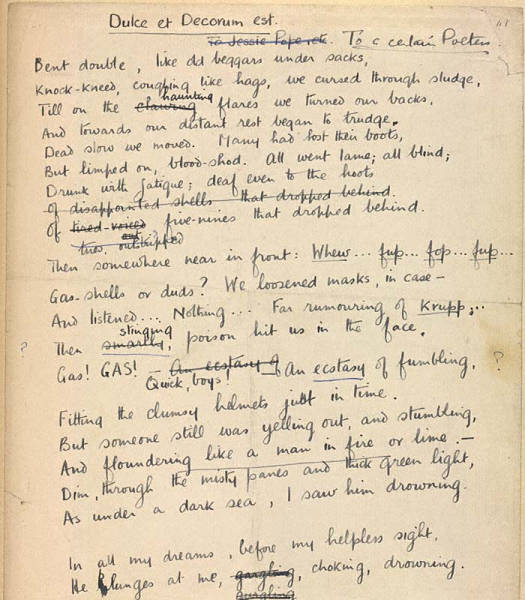 Dulce et Decorum est.
To Jessie Pope etc. To a certain Poetess.
Bent double, like old beggars under sacks,
Knock-kneed, coughing like hags, we cursed through sludge,
haunting
Till on the clawing flares we turned our backs,
And towards our distant rest began to trudge.
Dead slow we moved. Many had lost their boots,
But limped on, blood-shod. All went lame; all blind;
Drunk with fatigue; deaf even to the hoots
of disappointed shells that dropped behind.
Of tired-voiced five-nines that dropped behind.
tires, outstripped
Then somewhere near in front: Whew... fup... fop... fup...
Gas-shells or duds? We loosened masks, in case —
And listened.... Nothing... Far rumouring of Krupp;...
stinging
Then smartly, poison hit us in the face.
? Gas! GAS! — An ecstasy of An ecstasy of fumbling, ?
Quick, boys!
Fitting the clumsy helmets just in time.
But someone still was yelling out, and stumbling,
And floundering like a man in fire or lime. —
Dim, through the misty panes and thick green light,
As under a dark sea, I saw him drowning.
In all my dreams, before my helpless sight,
He plunges at me, gargling, choking, drowning.
gurgling